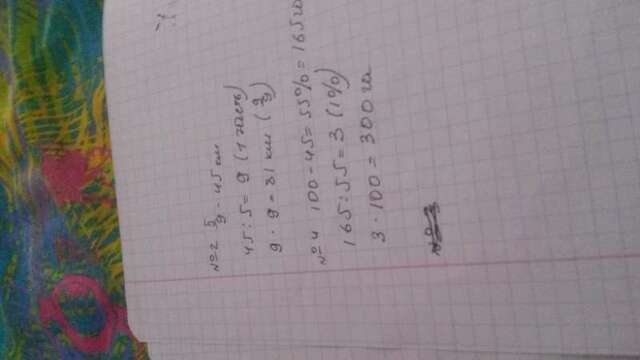 №2 5/9 - 45 км
45:5= 9 (1 часть)
9 · 9 = 81 км (9/9)
№4 100-45=55%=165га
165:55=3 (1%)
3·100=300 га
№3